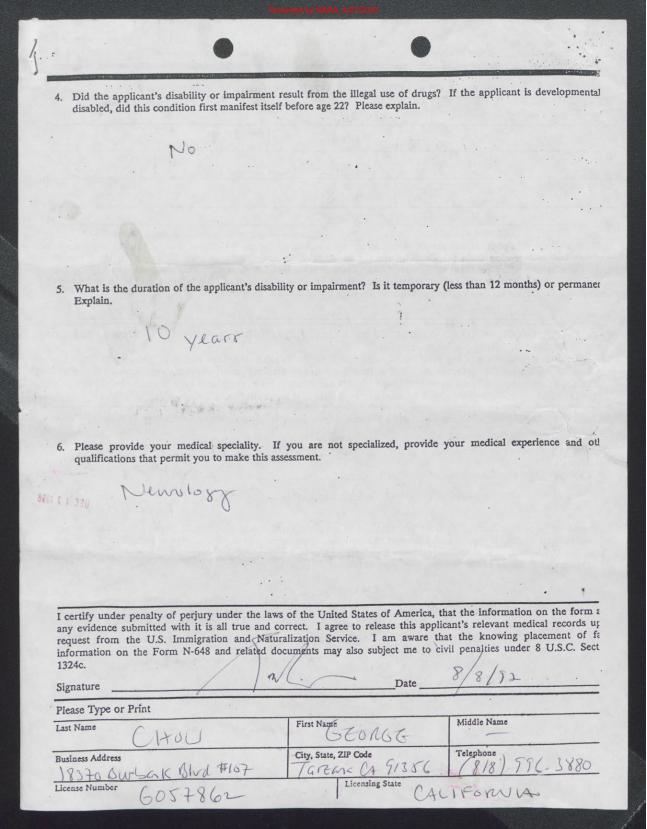 4. Did the applicant's disability or impairment result from the illegal use of drugs? If the applicant is developmental
disabled, did this condition first manifest itself before age 22? Please explain.
No
5. What is the duration of the applicant's disability or impairment? Is it temporary (less than 12 months) or permaner
Explain.
10 years
6. Please provide your medical speciality. If you are not specialized, provide your medical experience and otl
qualifications that permit you to make this assessment.
Neurology
I certify under penalty of perjury under the laws of the United States of America, that the information on the form a
any evidence submitted with it is all true and correct. I agree to release this applicant's relevant medical records up
request from the U.S. Immigration and Naturalization Service. I am aware that the knowing placement of fa
information on the Form N-648 and related documents may also subject me to civil penalties under 8 U.S.C. Sect
1324c.
Signature Date 8/8/92
Please Type or Print
Last Name First Name Middle Name
CHOU GEORGE —
Business Address City, State, ZIP Code Telephone
18370 Burbank Blvd #107 Tarzana CA 91356 (818) 996-3880
License Number Licensing State
G057862 CALIFORNIA